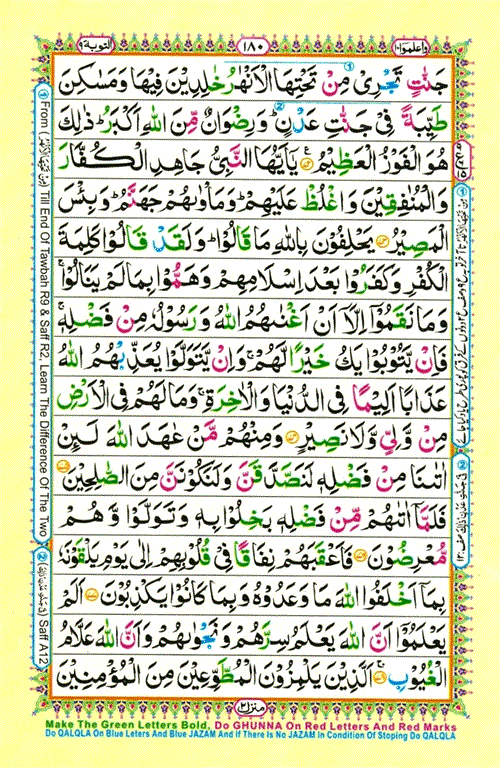 التوبة ٩
١٨٠
واعلموا ١٠
جَنّٰتٍ تَجْرِیْ مِنْ تَحْتِهَا الْاَنْهٰرُ خٰلِدِیْنَ فِیْهَا وَمَسٰكِنَ
طَیِّبَةً فِیْ جَنّٰتِ عَدْنٍ ؕ وَرِضْوَانٌ مِّنَ اللّٰهِ اَكْبَرُ ؕ ذٰلِكَ
هُوَ الْفَوْزُ الْعَظِیْمُ یٰۤاَیُّهَا النَّبِیُّ جَاهِدِ الْكُفَّارَ
وَالْمُنٰفِقِیْنَ وَاغْلُظْ عَلَیْهِمْ ؕ وَمَاْوٰىهُمْ جَهَنَّمُ ؕ وَبِئْسَ
الْمَصِیْرُ یَحْلِفُوْنَ بِاللّٰهِ مَا قَالُوْا ؕ وَلَقَدْ قَالُوْا كَلِمَةَ
الْكُفْرِ وَكَفَرُوْا بَعْدَ اِسْلَامِهِمْ وَهَمُّوْا بِمَا لَمْ یَنَالُوْا ۚ
وَمَا نَقَمُوْۤا اِلَّاۤ اَنْ اَغْنٰىهُمُ اللّٰهُ وَرَسُوْلُهٗ مِنْ فَضْلِهٖ ۚ
فَاِنْ یَّتُوْبُوْا یَكُ خَیْرًا لَّهُمْ ۚ وَاِنْ یَّتَوَلَّوْا یُعَذِّبْهُمُ اللّٰهُ
عَذَابًا اَلِیْمًا فِی الدُّنْیَا وَالْاٰخِرَةِ ۚ وَمَا لَهُمْ فِی الْاَرْضِ
مِنْ وَّلِیٍّ وَّلَا نَصِیْرٍ وَمِنْهُمْ مَّنْ عٰهَدَ اللّٰهَ لَىِٕنْ
اٰتٰىنَا مِنْ فَضْلِهٖ لَنَصَّدَّقَنَّ وَلَنَكُوْنَنَّ مِنَ الصّٰلِحِیْنَ
فَلَمَّاۤ اٰتٰىهُمْ مِّنْ فَضْلِهٖ بَخِلُوْا بِهٖ وَتَوَلَّوْا وَّهُمْ
مُّعْرِضُوْنَ فَاَعْقَبَهُمْ نِفَاقًا فِیْ قُلُوْبِهِمْ اِلٰی یَوْمِ یَلْقَوْنَهٗ
بِمَاۤ اَخْلَفُوا اللّٰهَ مَا وَعَدُوْهُ وَبِمَا كَانُوْا یَكْذِبُوْنَ اَلَمْ
یَعْلَمُوْۤا اَنَّ اللّٰهَ یَعْلَمُ سِرَّهُمْ وَنَجْوٰىهُمْ وَاَنَّ اللّٰهَ عَلَّامُ
الْغُیُوْبِ اَلَّذِیْنَ یَلْمِزُوْنَ الْمُطَّوِّعِیْنَ مِنَ الْمُؤْمِنِیْنَ
منزل ٢
① From (مِنْ تَحْتِهَا الْاَنْهٰرُ) Till End Of Tawbah R9 & Saff R2, Learn The Difference Of The Two
② Saff A12
Make The Green Letters Bold, Do GHUNNA On Red Letters And Red Marks
Do QALQLA On Blue Leters And Blue JAZAM And If There Is No JAZAM In Condition Of Stoping Do QALQLA